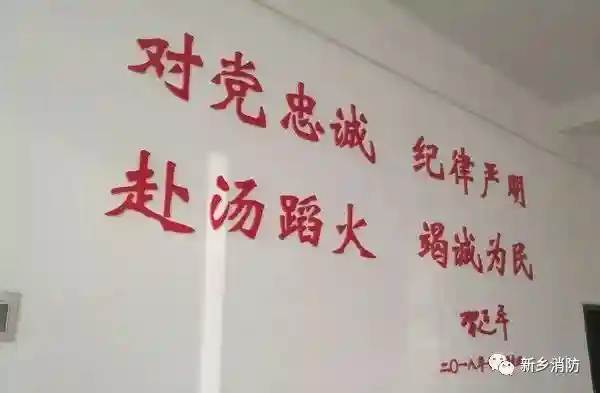 对党忠诚 纪律严明
赴汤蹈火 竭诚为民
二〇一八年
新乡消防